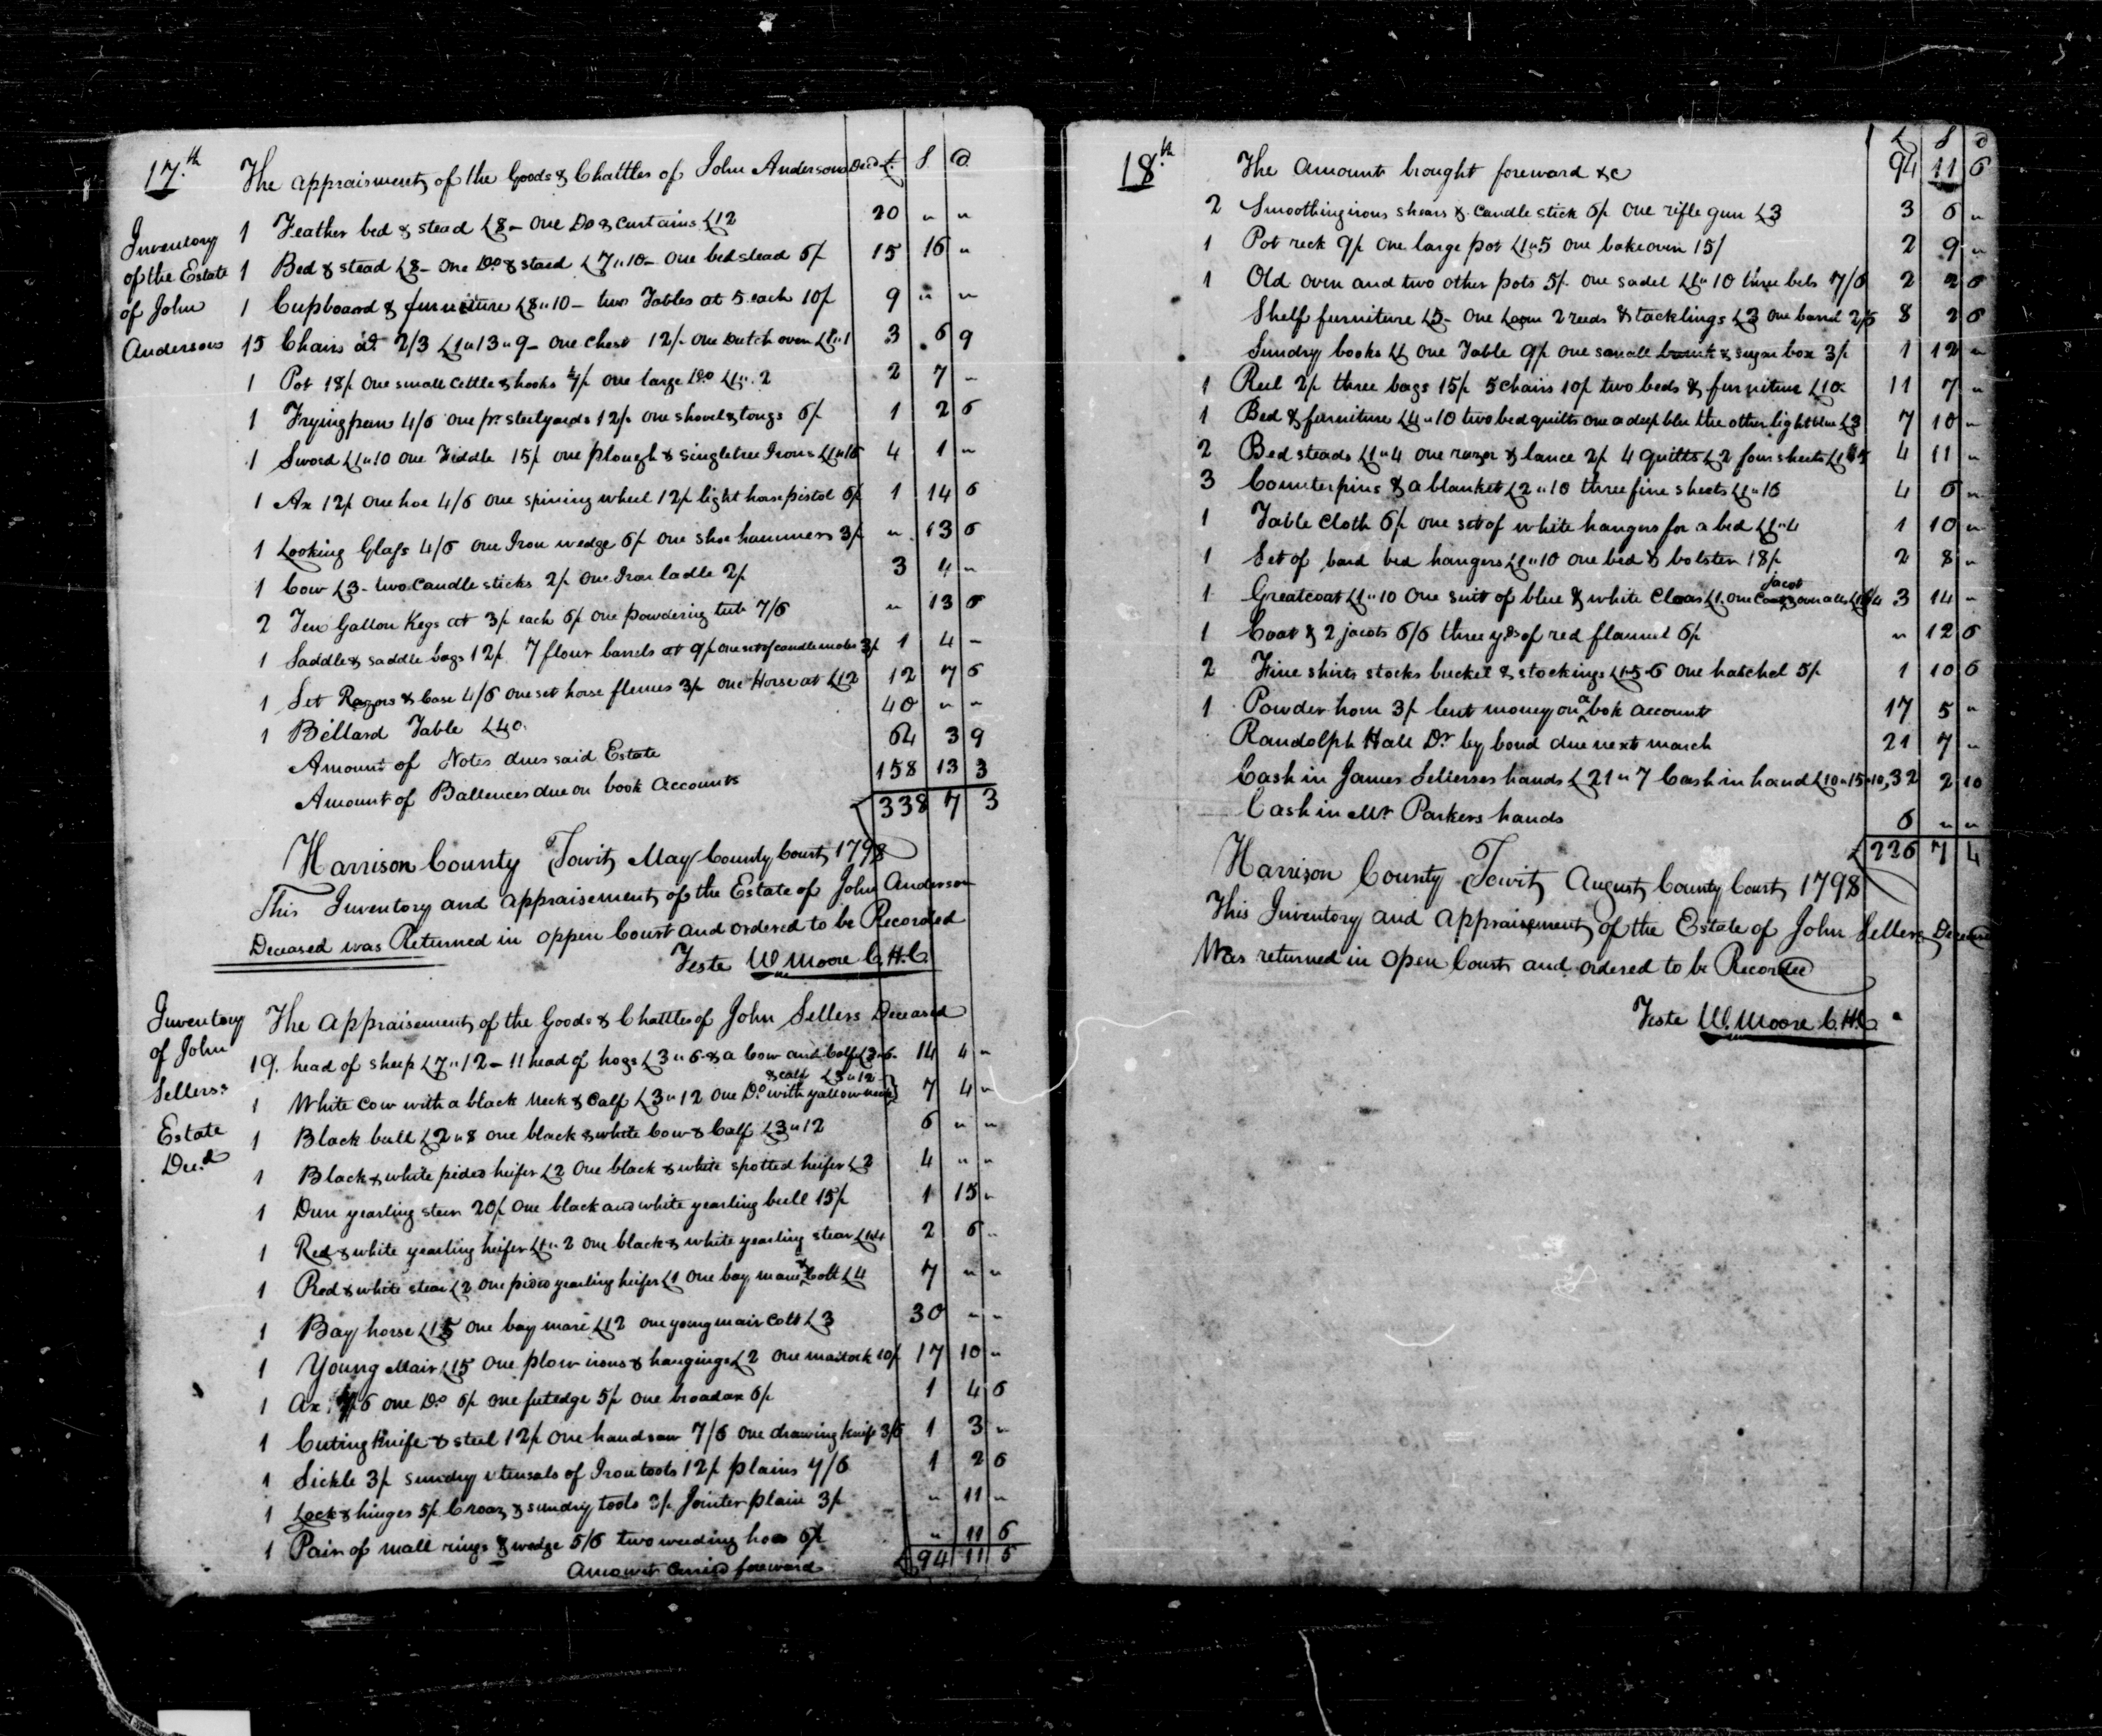 17.th The appraisment of the Goods & Chattles of John Anderson Decd £. S. D.
Inventory of the Estate of John Anderson
1 Feather bed & stead £8 - One Do & curtains £12 20 " "
1 Bed & stead £8 - One Do & staed £7"10 - One bedstead 6/ 15 16 "
1 Cupboard & furniture £8"10 - two Tables at 5 each 10/ 9 " "
15 Chairs at 2/3 £1"13"9 - One Chest 12/- One Dutch oven £1"1 3 6 9
1 Pot 18/ One small Cettle & hooks 7/ one large Do £1"2 2 7 -
1 Frying pan 4/6 one pr. steelyards 12/ one shovel & tongs 6/ 1 2 6
1 Sword £1"10 One Fiddle 15/ one plough & singletree Irons £1"16 4 1 "
1 Ax 12/ One hoe 4/6 One spining wheel 12/ light horse pistol 6/ 1 14 6
1 Looking Glass 4/6 One Iron wedge 6/ One shoe hammers 3/ " 13 6
1 Cow £3 - two Candle sticks 2/ One Iron ladle 2/ 3 4 "
2 Ten Gallon Kegs at 3/ each 6/ One powdering tub 7/6 " 13 6
1 Saddle & saddle bags 12/ 7 flour barrels at 9/ one set of candle molds 3/ 1 4 -
1 Set Razors & Case 4/6 one set horse flemes 3/ One Horse at £12 12 7 6
1 Billard Table £40. 40 " "
Amount of Notes dues said Estate 64 3 9
Amount of Ballences due on book Accounts 158 13 3
338 7 3
Harrison County Towit, May County Court 1798
This Inventory and Appraisement of the Estate of John Anderson
Deceased was Returned in oppen Court and ordered to be Recorded
Teste W. Moore C.H.C.
Inventory of John Sellers: Estate Decd
The Appraisement of the Goods & Chattles of John Sellers Deceased
19. head of sheep £7"12 - 11 head of hogs £3"6 & a Cow and Calf £3"6 14 4 "
& calf £3"12
1 White Cow with a black Neck & Calf £3"12 One Do with yallow neck 7 4 "
1 Black bull £2"8 one black & white Cow & Calf £3"12 6 " "
1 Black & white pided heifer £2 One black & white spotted heifer £2 4 " "
1 Dun yearling steer 20/ One black and white yearling bull 15/ 1 15 "
1 Red & white yearling heifer £1"2 one black & white yearling stear £1"4 2 6 "
1 Red & white stear £2 One pided yearling heifer £1 One bay mare & Colt £4 7 " "
1 Bay horse £15 one bay mare £12 one young mair Colt £3 30 " "
1 Young Mair £15 One plow irons & hangings £2 One mattock 10/ 17 10 "
1 Ax 6 one Do 6/ one 5/ one broadax 6/ 1 4 6
1 Cuting Knife & steel 12/ One handsaw 7/6 one drawing knife 3/6 1 3 "
1 Sickle 3/ sundry utensals of Iron tools 12/ plains 7/6 1 2 6
1 Lock & hinges 5/ Croaz & sundry tools 3/ Jointer plain 3/ " 11 "
1 Pair of mall rings & wedge 5/6 two weeding hoes 6/ " 11 6
Amount Carrid foreward £94 11 6
18.th £ S D
The Amount brought foreward &c 94 11 6
2 Smoothing irons shears & Candle stick 6/ One rifle gun £3 3 6 "
1 Pot reck 9/ One large pot £1"5 one bake oven 15/ 2 9 "
1 Old oven and two other pots 5/ one sadel £1"10 three bels 7/6 2 2 6
Shelf furniture £5 - One Loom 2 reeds & tacklings £3 One barrel 2/6 8 2 6
Sundry books £1 one Table 9/ One small & sugar box 3/ 1 12 "
1 Reel 2/ three bags 15/ 5 chairs 10/ two beds & furniture £10 11 7 "
1 Bed & furniture £4"10 two bed quilts one a deep blu the other light blue £3 7 10 "
2 Bed steads £1"4 one razor & lance 2/ 4 quilts £2 four sheets £1"5 4 11 "
3 Counterpins & a blanket £2"10 three fine sheets £1"16 4 6 "
1 Table Cloth 6/ one set of white hangers for a bed £1"4 1 10 "
1 Set of bed hangers £1"10 one bed & bolster 18/ 2 8 "
jacot
1 Greatcoat £1"10 One suit of blue & white £1. one & overalls 3 14 "
1 Coat & 2 jacots 6/6 three yds of red flannel 6/ " 12 6
2 Fine shirts stocks buckel & stockings £1-5-6 One hatchel 5/ 1 10 6
1 Powder horn 3/ lent money on a bok account 17 5 "
Randolph Hall Dr by bond due next march 21 7 "
Cash in James Sellerses hands £21"7 Cash in hand £10"15"10, 32 2 10
Cash in Mr Parkers hands 6 " "
£226 7 4
Harrison County Towit, August County Court 1798
This Inventory and Appraisement of the Estate of John Sellers Deceased
Was returned in Open Court and ordered to be Recorded
Teste W. Moore C.H.C.